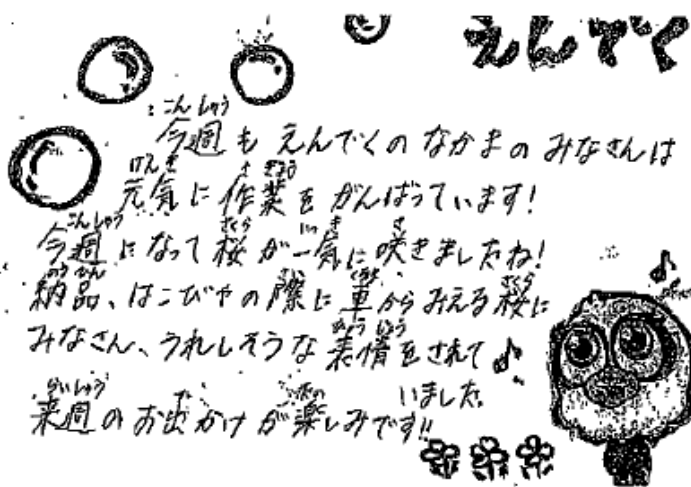 えんでく
今週も えんでくの なかまの みなさんは
元気に 作業を がんばっています!
今週になって 桜が一気に咲きましたね!
納品、はこびやの際に車からみえる桜に
みなさん、うれしそうな表情をされて
いました。
来週のお出かけが楽しみです!!